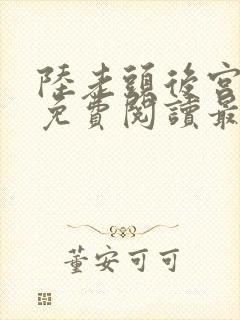 陸走頭後宮
免費閱讀最
董安可可